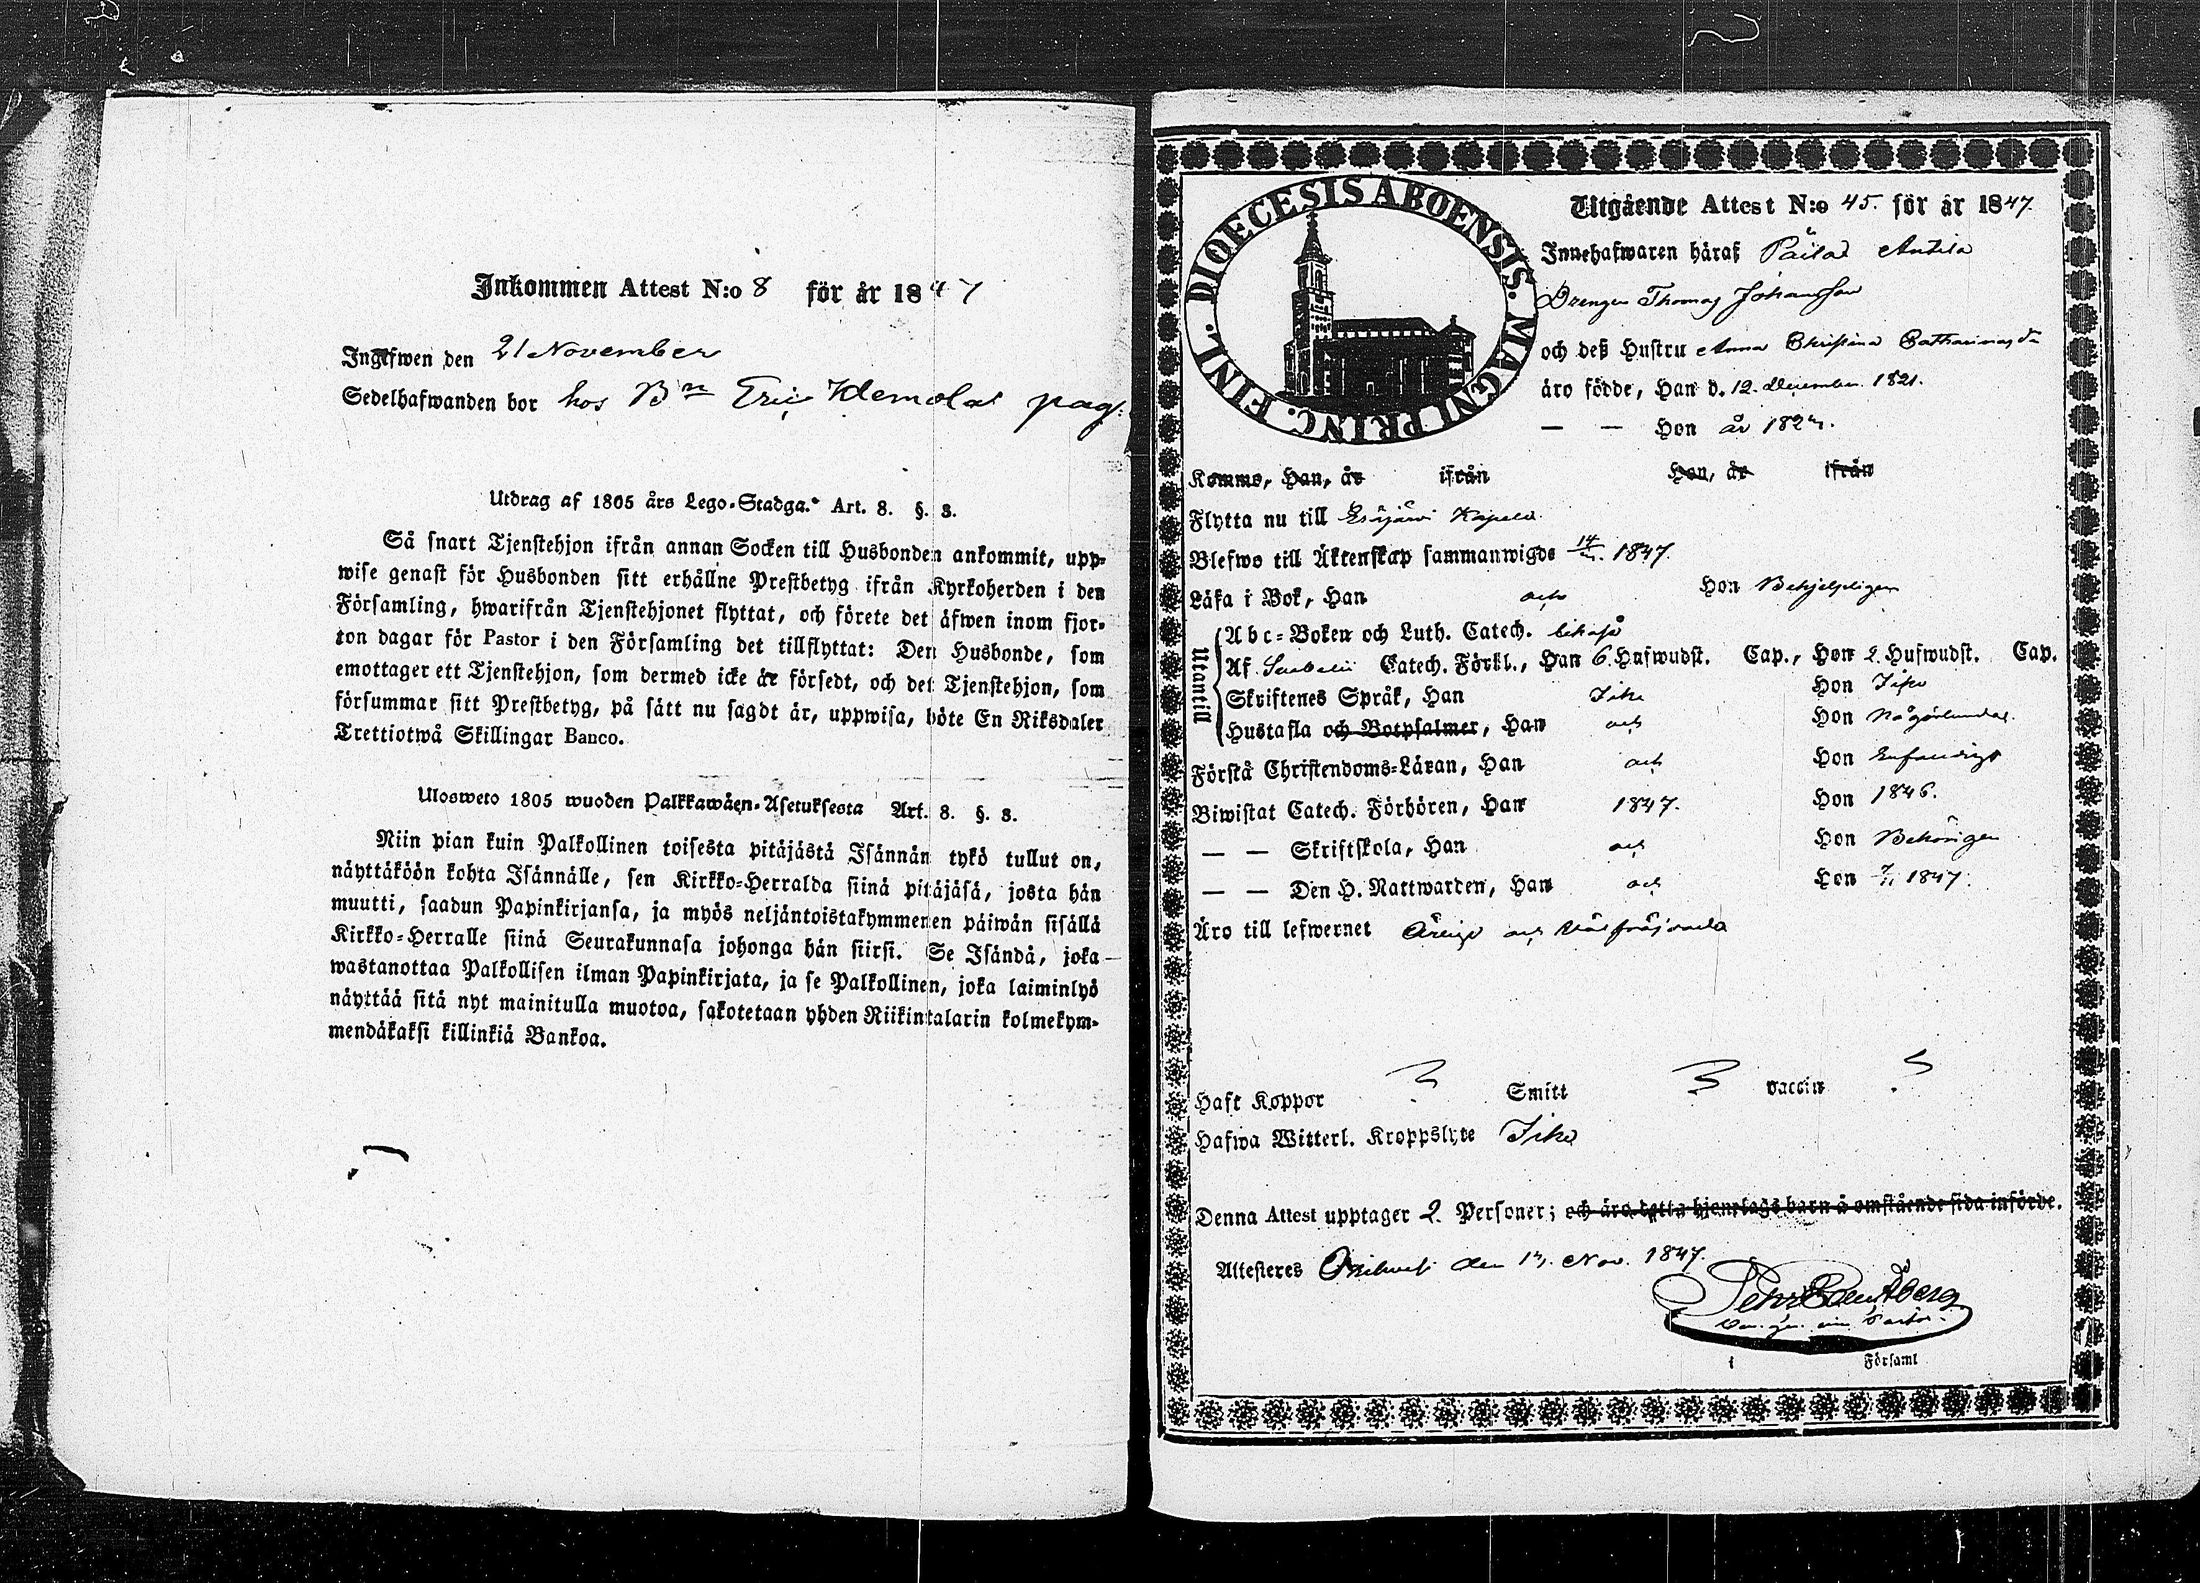 Inkommen Attest N:o 8 för år 1847
Ingifwen den 21 November
Sedelhafwanden bor hos Bn Eric Klemola pag:
Utdrag af 1805 års Lego-Stadga. Art. 8. §. 3.
Så snart Tjenstehjon ifrån annan Socken till Husbonden ankommit, upp-
wise genast för Husbonden sitt erhållne Prestbetyg ifrån Kyrkoherden i den
Församling, hwarifrån Tjenstehjonet flyttat, och förete det äfwen inom fjor-
ton dagar för Pastor i den Församling det tillflyttat: Den Husbonde, som
emottager ett Tjenstehjon, som dermed icke är försedt, och det Tjenstehjon, som
försummar sitt Prestbetyg, på sätt nu sagdt är, uppwisa, böte En Riksdaler
Trettiotwå Skillingar Banco.
Ulosweto 1805 wuoden Palkkawäen-Asetuksesta Art. 8. §. 3.
Niin pian kuin Palkollinen toisesta pitäjästä Isännän tykö tullut on,
näyttäköön kohta Isännälle, sen Kirkko-Herralda siinä pitäjäsä, josta hän
muutti, saadun Papinkirjansa, ja myös neljäntoistakymmenen päiwän sisällä
Kirkko-Herralle siinä Seurakunnasa johonga hän siirsi. Se Isändä, joka
wastanottaa Palkollisen ilman Papinkirjata, ja se Palkollinen, joka laiminlyö
näyttää sitä nyt mainitulla muotoa, sakotetaan yhden Riikintalarin kolmekym-
mendäkaksi killinkiä Bankoa.
DIOECESIS ABOENSIS. MAGNI PRINC. FINL.
Utgående Attest N:o 45. för år 1847.
Innehafwaren häraf
Drengen Thomas Johansson
och deß Hustru Anna Christina Catharinas dr
äro födde, Han d. 12. December 1821.
— — Hon år
Kommo, Han, år ifrån Hon, år ifrån
Flytta nu till Esijärvi Kapell
Blefwo till Äktenskap sammanwigde 1847.
Läsa i Bok, Han och Hon Behjelpligen
Utantill
Abc-Boken och Luth. Catech. bikaså
Af Catech. Förkl., Han 6. Hufwudst. Cap., Hon 2. Hufwudst. Cap.
Skriftenes Språk, Han Icke Hon Icke
Hustafla och Botpsalmer, Han och Hon någorlunda
Förstå Christendoms-Läran, Han och Hon Enfaldigt
Biwistat Catech. Förhören, Han 1847. Hon 1846.
— — Skriftskola, Han och Hon Behörigen
— — Den H. Nattwarden, Han och Hon 7/11 1847.
Äro till lefwernet Ärlige och Välfräjdade
Haft Koppor ? Smitt ? vaccin ?
Hafwa Witterl. Kroppslyte Icke
Denna Attest upptager 2. Personer; och äro detta hjonelags barn å omstående sida införde.
Attesteres Orihvesi den Nov. 1847.
i Församl